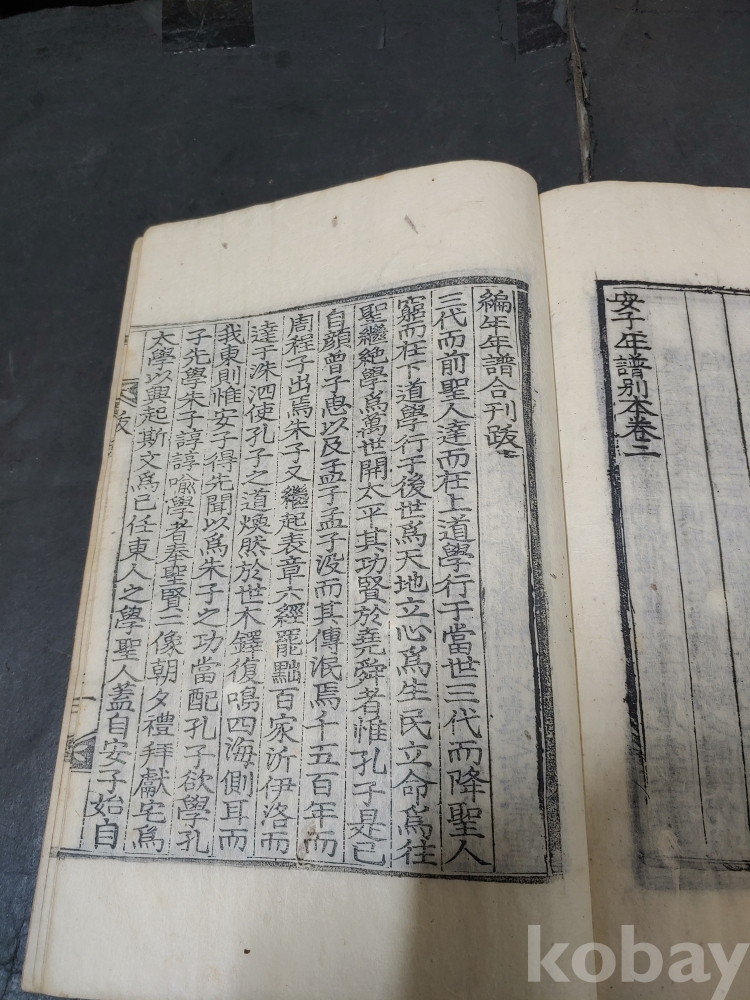 安子年譜別本卷二
編年年譜合刊跋
三代而前聖人達而在上道學行于當世三代而降聖人
窮而在下道學行于後世爲天地立心爲生民立命爲往
聖繼絶學爲萬世開太平其功賢於堯舜者惟孔子是已
自顔曾子思以及孟子孟子沒而其傳泯焉千五百年而
周程子出焉朱子又繼起表章六經罷黜百家沂伊洛而
達于洙泗使孔子之道煥然於世木鐸復鳴四海側耳而
我東則惟安子得先聞以爲朱子之功當配孔子欲學孔
子先學朱子諄諄喩學者奉聖賢二像朝夕禮拜獻宅爲
太學以興起斯文爲己任東人之學聖人蓋自安子始自
跋
一
kobay